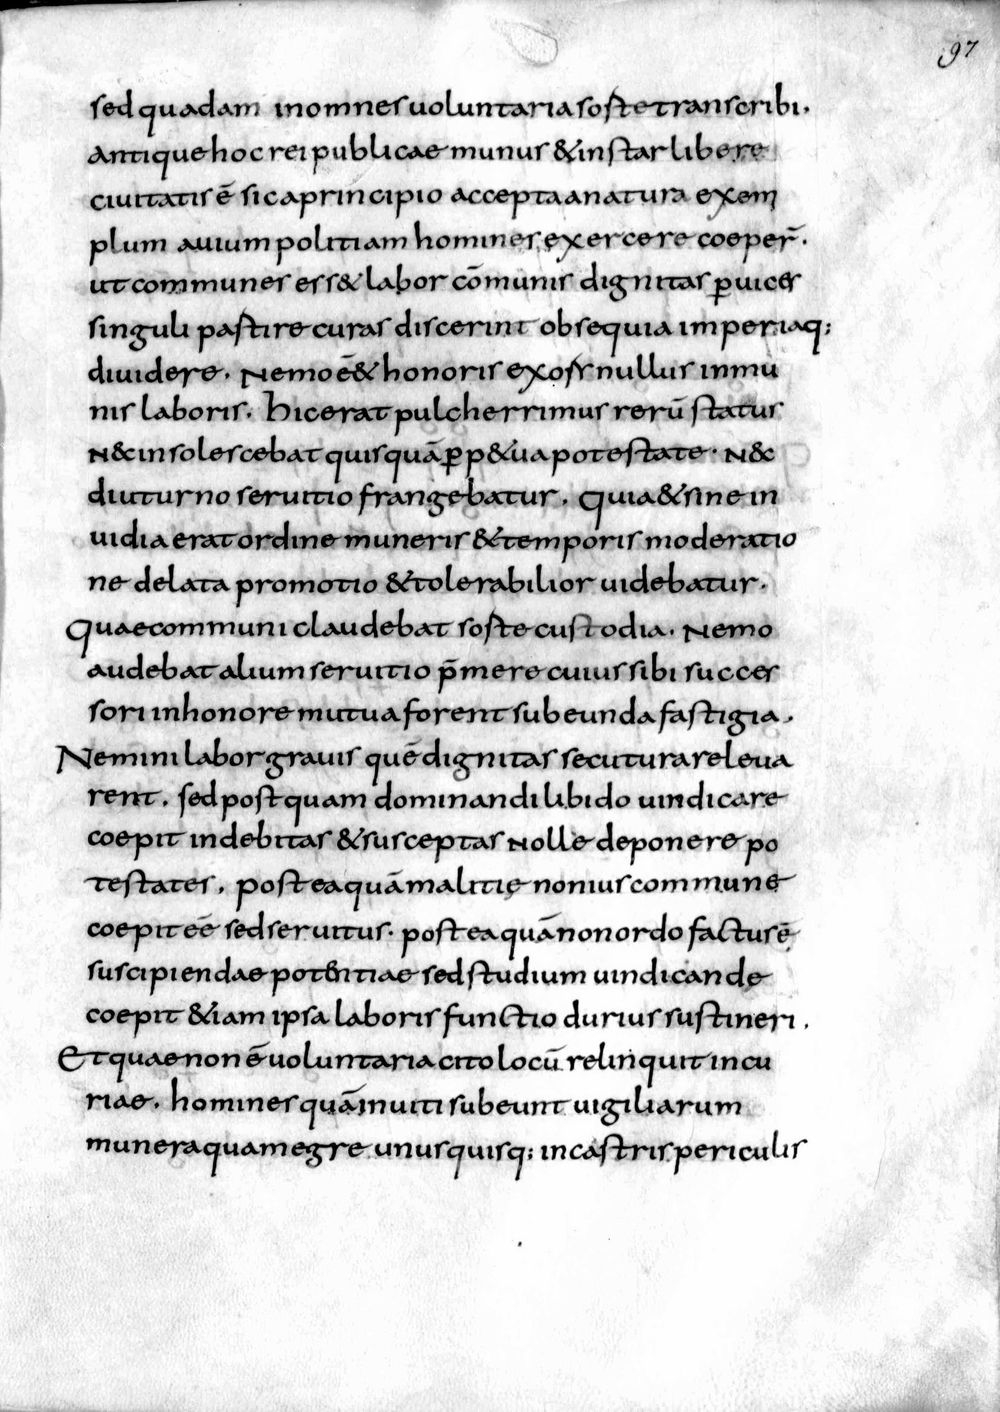 97
sed quadam in omnes uoluntaria sorte transcribi.
Antique hoc rei publicae munus & instar libere
ciuitatis ē sic a principio accepta a natura exem
plum auium politiam homines exercere coeper̄.
ut communes ess& labor cōmunis dignitas ꝑ uices
singuli pastire curas discerint obsequia imperiaq;
diuidere. Nemo ē& honoris exors nullus inmu
nis laboris. Hic erat pulcherrimus rerū status
N& insolescebat quisquā ꝑp&ua potestate. N&
diuturno seruitio frangebatur. Quia & sine in
uidia erat ordine muneris & temporis moderatio
ne delata promotio & tolerabilior uidebatur.
Quae communi claudebat sorte custodia. Nemo
audebat alium seruitio p̄mere cuius sibi succes
sori in honore mutua forent subeunda fastigia.
Nemini labor grauis quē dignitas secutura releua
rent. sed postquam dominandi libido uindicare
coepit indebitas & susceptas Nolle deponere po
testates. posteaquā malitię non ius commune
coepit eē sed seruitus. posteaquā non ordo factus ē
suscipiendae potentiae sed studium uindicandę
coepit &iam ipsa laboris functio durius sustineri.
Et quae non ē uoluntaria cito locū relinquit incu
riae. homines quā inuiti subeunt uigiliarum
munera quam egre unusquisq; in castris periculis